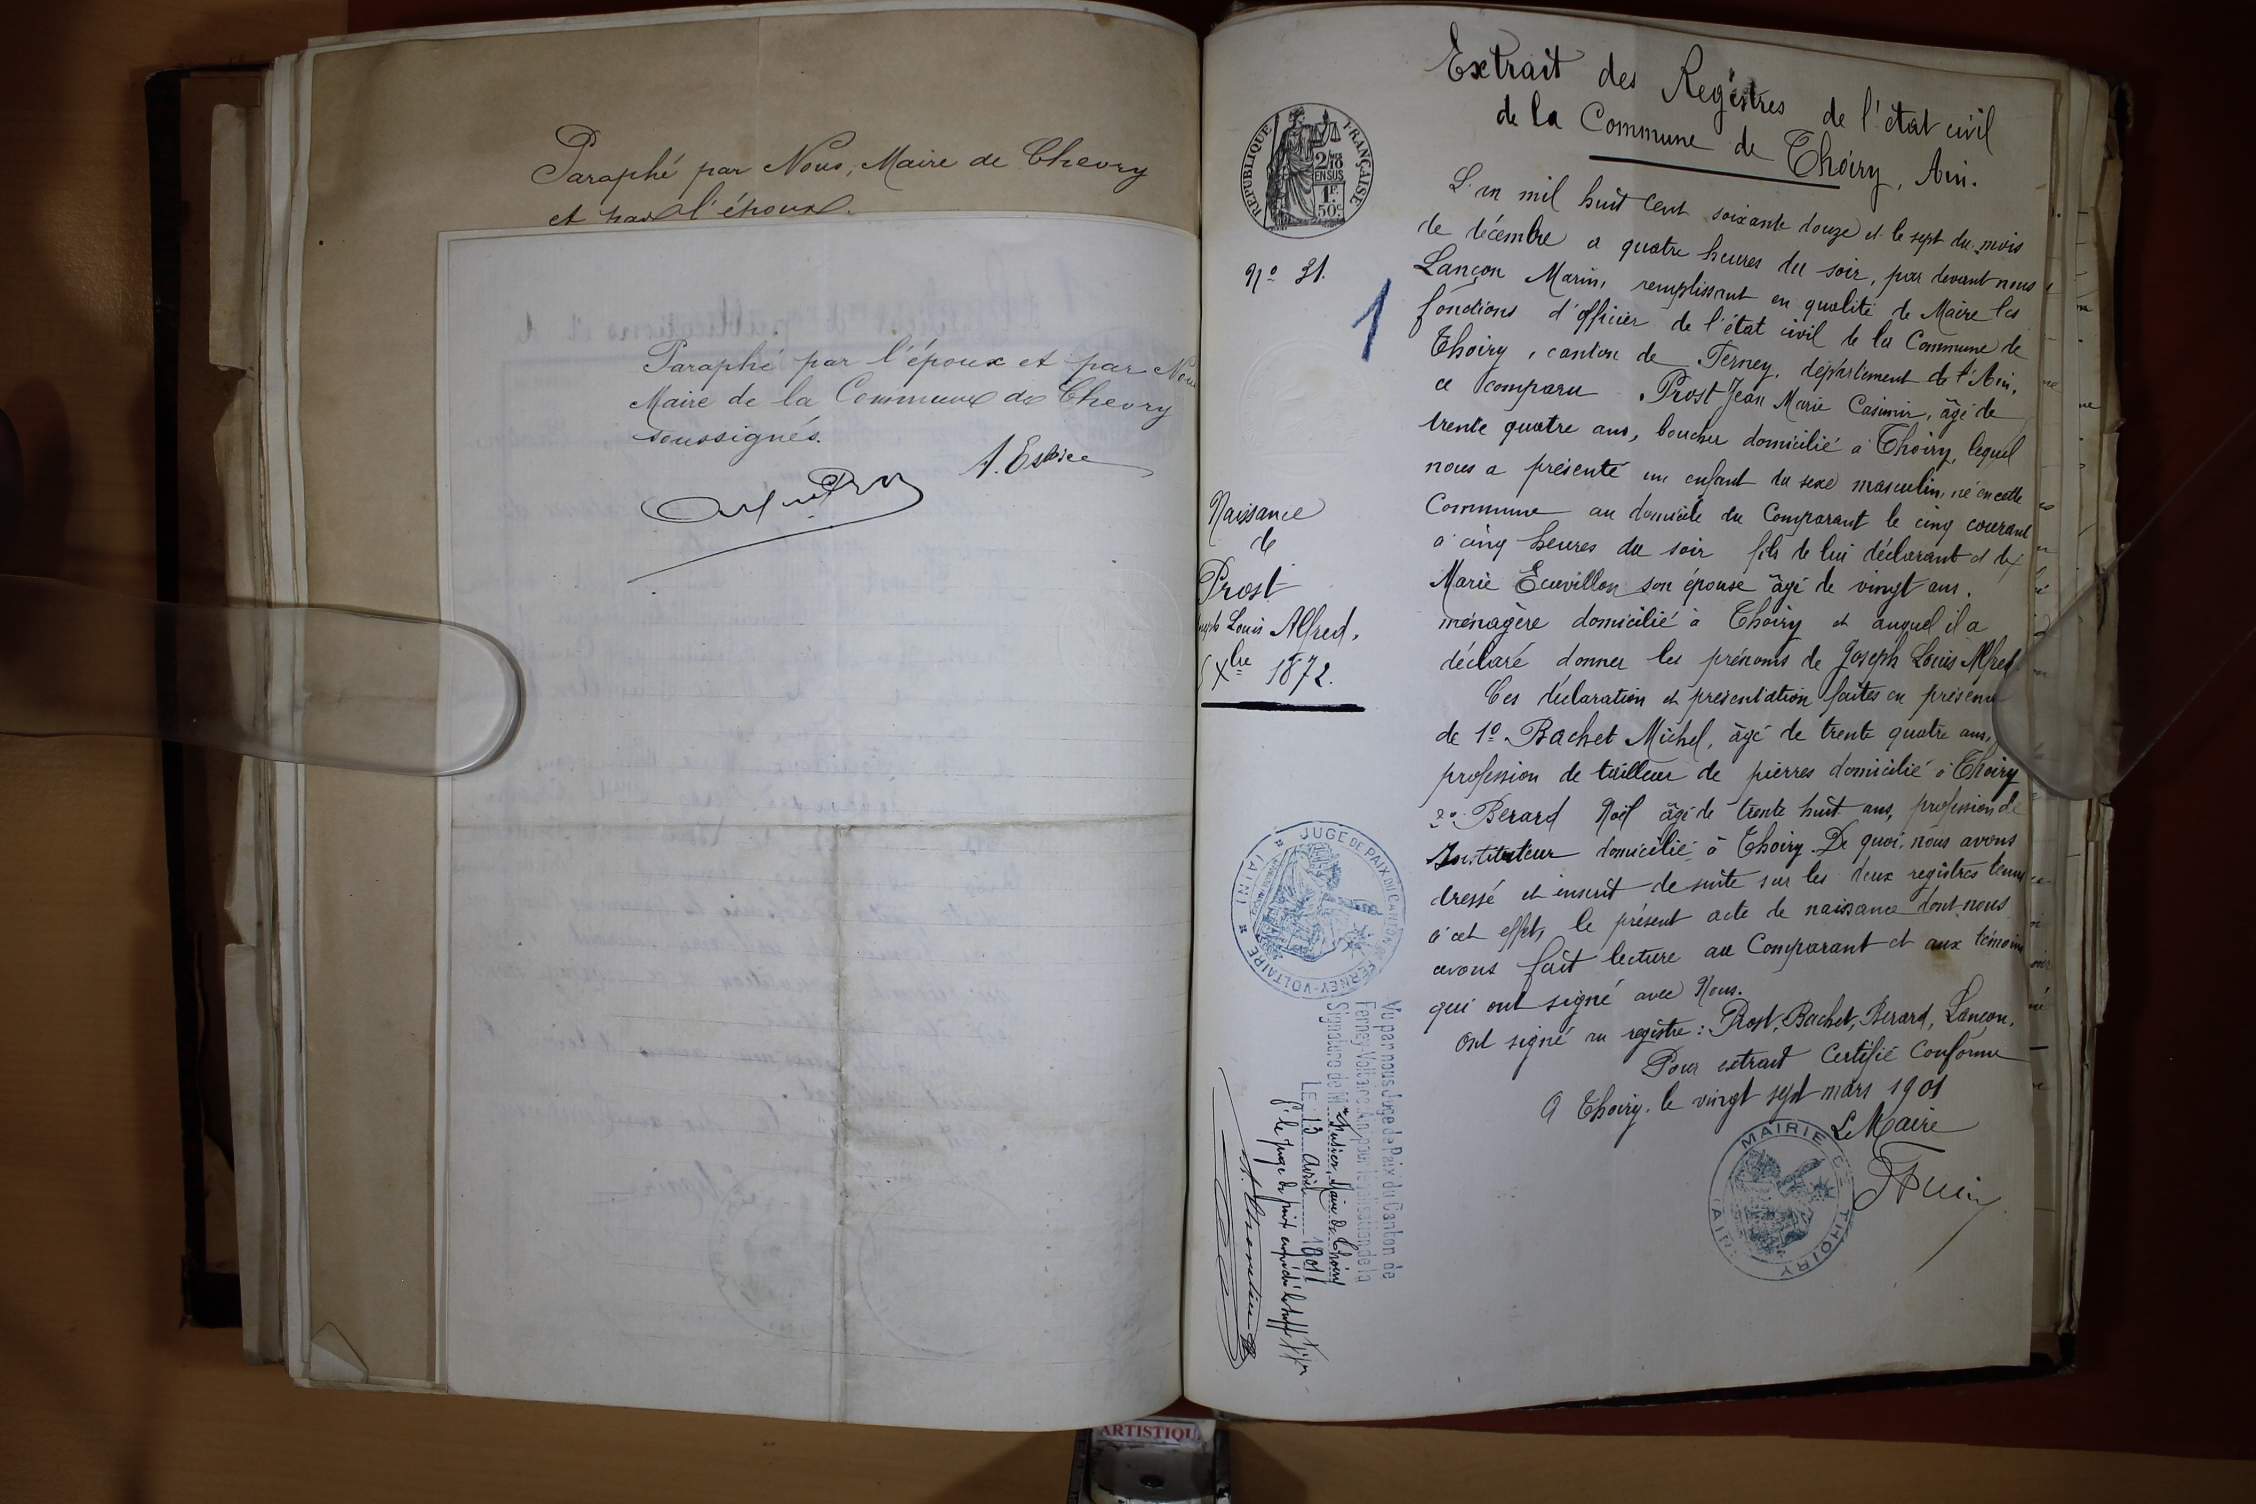 Paraphé par Nous, Maire de Chevry
et par l'époux.
Paraphé par l'époux et par Nous
Maire de la Commune de Chevry
soussignés.
Extrait des Registres de l'état civil
de la Commune de Thoiry, Ain.
REPUBLIQUE FRANÇAISE
2/10
EN SUS
1F.
50c
No 31.
1
L'an mil huit cent soixante douze et le sept du mois
de décembre a quatre heures du soir, par devant nous
Lançon Marin, remplissant en qualité de Maire les
fonctions d'officier de l'état civil de la Commune de
Thoiry, canton de Ferney, département de l'Ain,
a comparu Prost Jean Marie Casimir, âgé de
trente quatre ans, boucher domicilié à Thoiry, lequel
nous a présenté un enfant du sexe masculin, né en cette
Commune au domicile du Comparant le cinq courant
à cinq heures du soir fils de lui déclarant et de
Marie Ecuvillon son épouse âgé de vingt ans.
ménagère domicilié à Thoiry et auquel il a
déclaré donner les prénoms de Joseph Louis Alfred
Ces déclaration et présentation faites en présence
de 1o Bachet Michel, âgé de trente quatre ans,
profession de tailleur de pierres domicilié à Thoiry
2o Berard Noël âgé de trente huit ans, profession de
Instituteur domicilié à Thoiry. De quoi, nous avons
dressé et inscrit de suite sur les deux registres tenus
à cet effet, le présent acte de naissance dont nous
avons fait lecture au Comparant et aux témoins
qui ont signé avec Nous.
Ont signé au registre : Prost, Bachet, Berard, Lançon.
Pour extrait Certifié Conforme
A Thoiry, le vingt sept mars 1901
Le Maire
MAIRIE DE THOIRY (AIN)
Naissance
de
Prost
Louis Alfred,
Xbre 1872.
JUGE DE PAIX DU CANTON DE FERNEY-VOLTAIRE (AIN)
Vu par nous Juge de Paix du Canton de
Ferney-Voltaire Ain, pour légalisation de la
Signature de M Maire de Thoiry
LE 13 avril 1901
ARTISTIQU